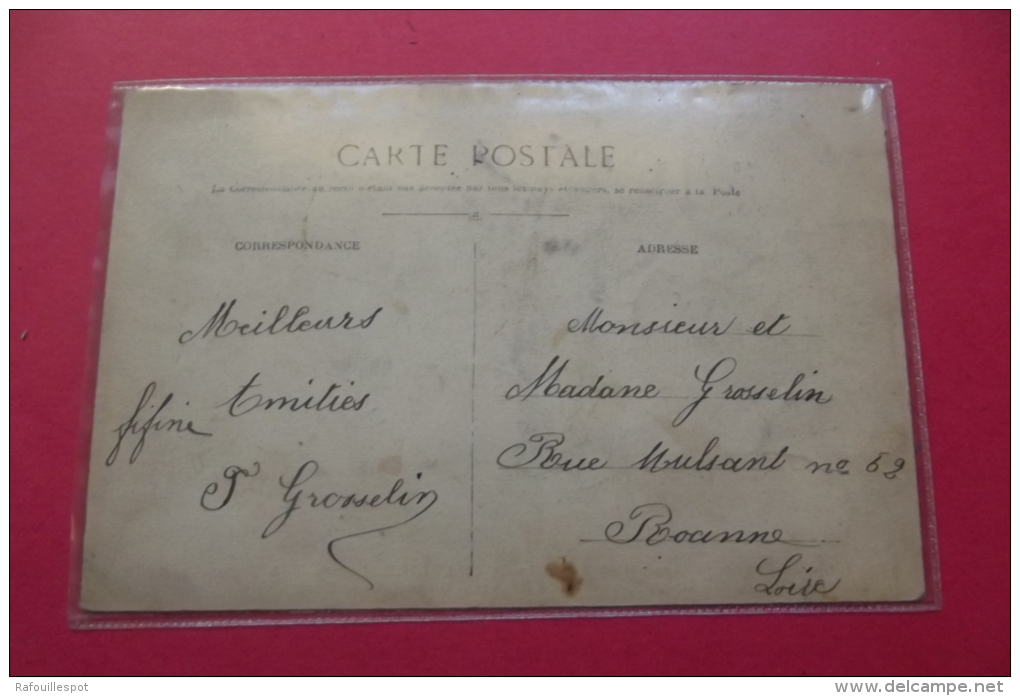 CARTE POSTALE
La Correspondance au recto n'étant pas acceptée par tous les pays étrangers, se renseigner à la Poste
CORRESPONDANCE
Meilleurs
Amitiés
fifine
P Grosselin
ADRESSE
Monsieur et
Madane Grosselin
Rue Mulsant no 52
Roanne
Loire
Rafouillespot
delcampe.net